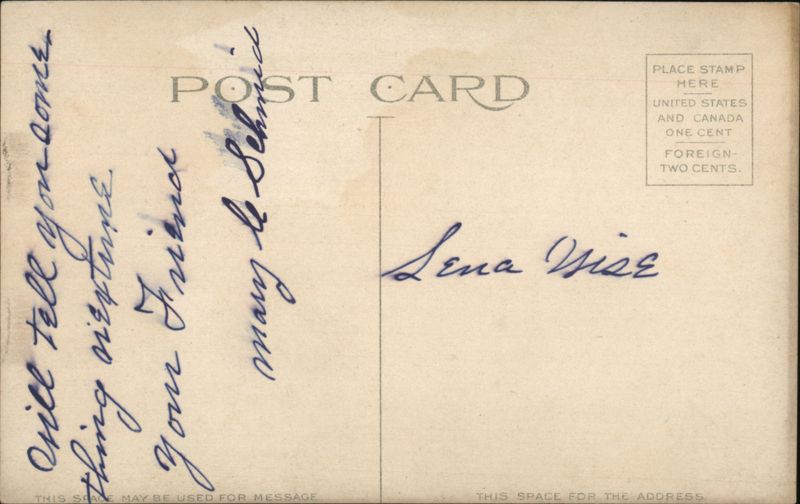 POST CARD
PLACE STAMP
HERE
UNITED STATES
AND CANADA
ONE CENT
FOREIGN-
TWO CENTS.
will tell you some
thing nextime
Your Friend
Mary C Schmid
Lena Wise
THIS SPACE MAY BE USED FOR MESSAGE
THIS SPACE FOR THE ADDRESS